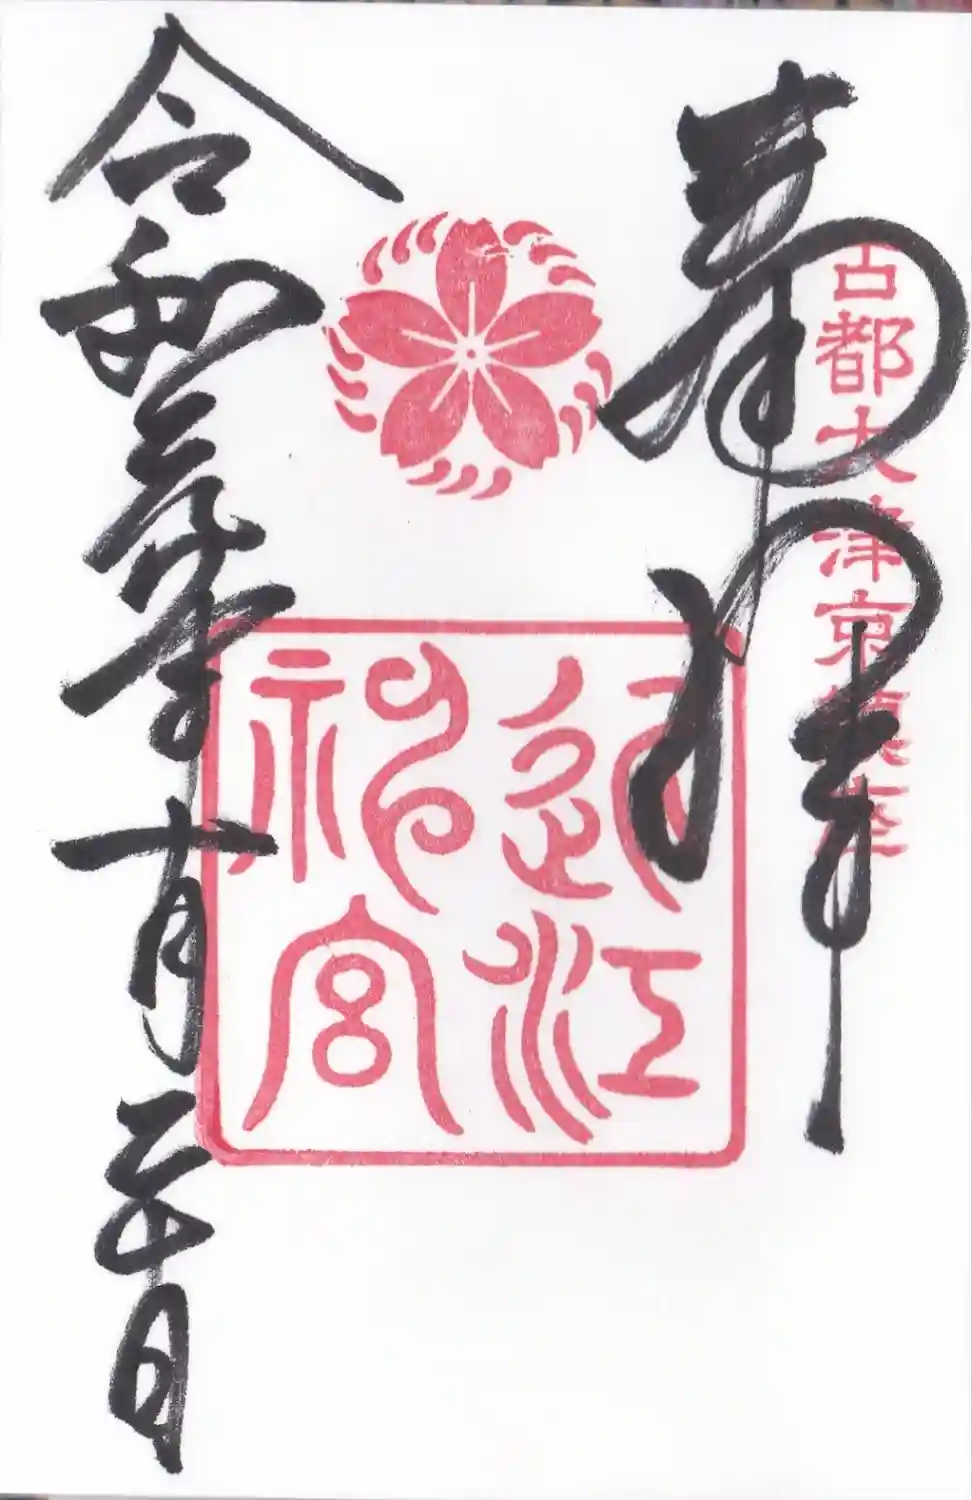 奉拝
古都大津京鎮座
近江
神宮
令和元年十月二十日